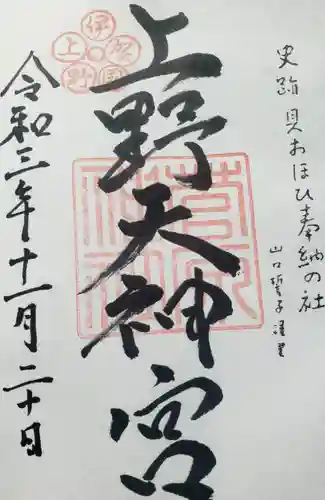 史跡 貝おほひ奉納の社
山口誓子謹書
上野天神宮
令和三年十一月二十日
伊賀国上野
菅原神社